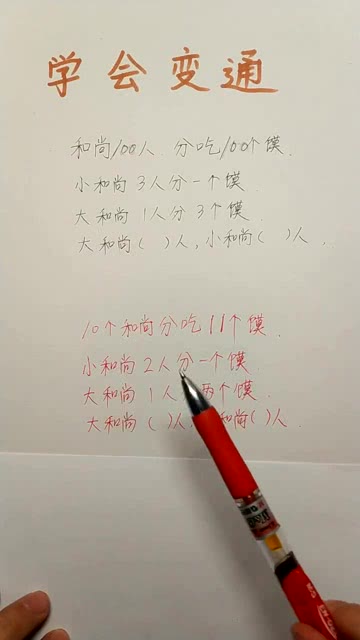 学会变通
和尚100人.分吃100个馍.
小和尚3人分一个馍.
大和尚1人分3个馍.
大和尚( )人,小和尚( )人,
10个和尚分吃11个馍.
小和尚2人分一个馍.
大和尚1人 两个馍.
大和尚( )人, 和尚( )人.